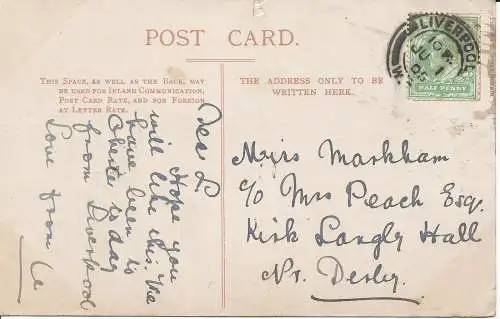 POST CARD.
THIS SPACE, AS WELL AS THE BACK, MAY
BE USED FOR INLAND COMMUNICATION,
POST CARD RATE, AND FOR FOREIGN
AT LETTER RATE.
THE ADDRESS ONLY TO BE
WRITTEN HERE.
LIVERPOOL
HALF PENNY
Dear L
Hope you
will like this. We
have been in
Chester to day
from Liverpool
Love from
Miss Markham
c/o Mrs Peach Esq.
Kirk Langly Hall
Nr. Derby.